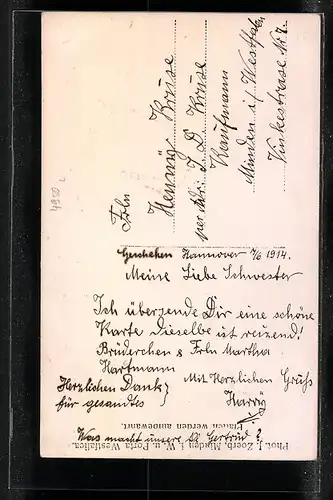 Frln
Hennÿ Kruse
per Adr: J. D Kruse
Kaufmann
Minden i/ Westfalen
Vinkestrasse Nr 7.
Geschehen Hannover 7/6 1914.
Meine Liebe Schwester
Ich übersende Dir eine schöne
Karte Dieselbe ist reizend!
Brüderchen & Frln Martha
Hartmann
Herzlichen Dank
für gesandtes
Mit Herzlichen Gruß
Harrÿ
Was macht unsere Kl Gertrud?
Phot. J. Zoerb, Minden i. W. u. Porta Westfalica.
Platten werden aufbewahrt.
4950